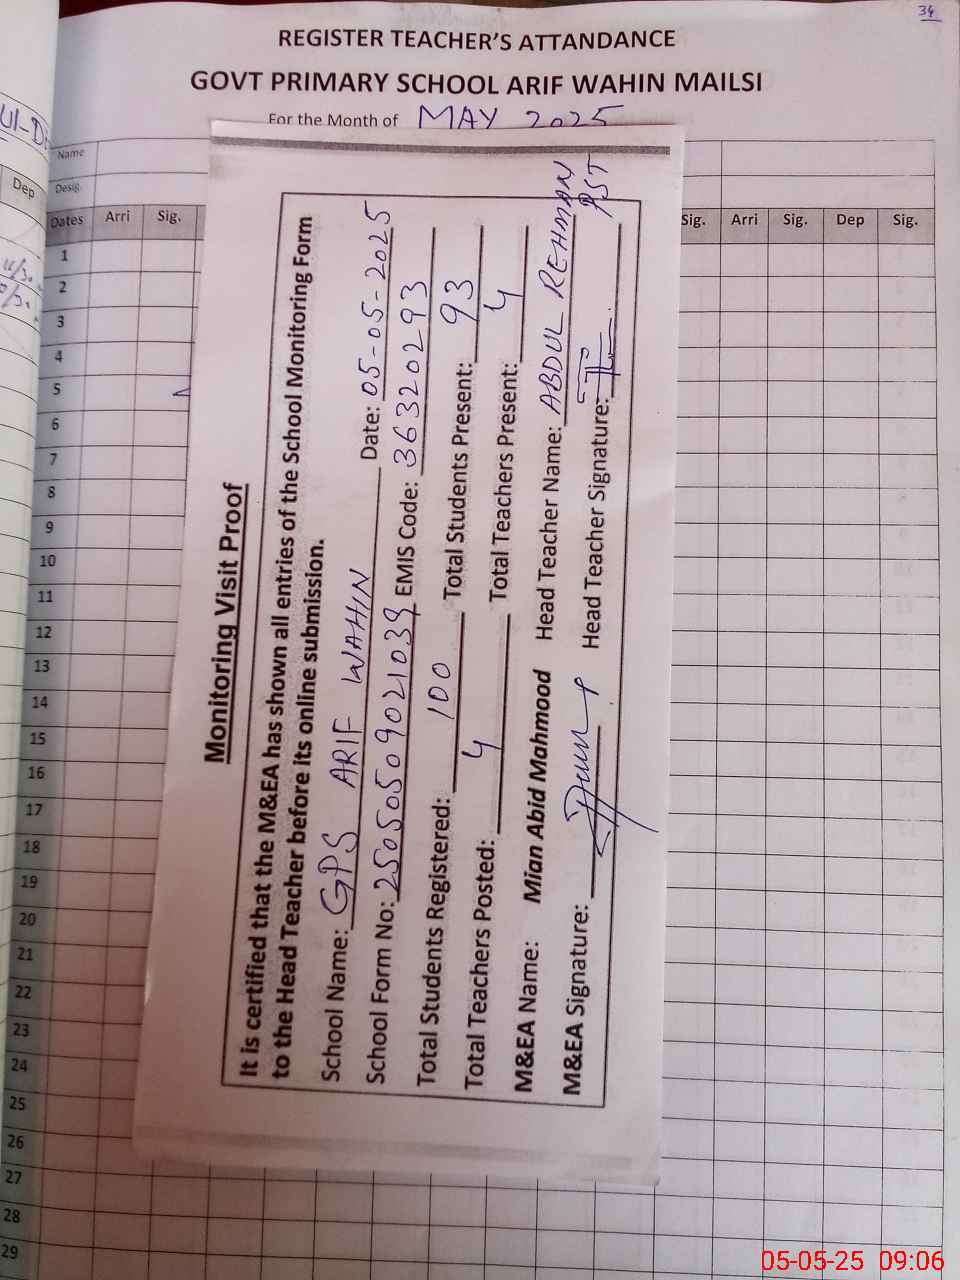 34
REGISTER TEACHER'S ATTANDANCE
GOVT PRIMARY SCHOOL ARIF WAHIN MAILSI
For the Month of MAY 2025
UI-D
Dep
Name
Desig.
Dates Arri Sig. Sig. Arri Sig. Dep Sig.
1
2
3
4
5
6
7
8
9
10
11
12
13
14
15
16
17
18
19
20
21
22
23
24
25
26
27
28
29
Monitoring Visit Proof
It is certified that the M&EA has shown all entries of the School Monitoring Form
to the Head Teacher before its online submission.
School Name: GPS ARIF WAHIN Date: 05-05-2025
School Form No: 25050509021039 EMIS Code: 36320293
Total Students Registered: 100 Total Students Present: 93
Total Teachers Posted: 4 Total Teachers Present: 4
M&EA Name: Mian Abid Mahmood Head Teacher Name: ABDUL REHMAN PST
M&EA Signature: Head Teacher Signature:
05-05-25 09:06